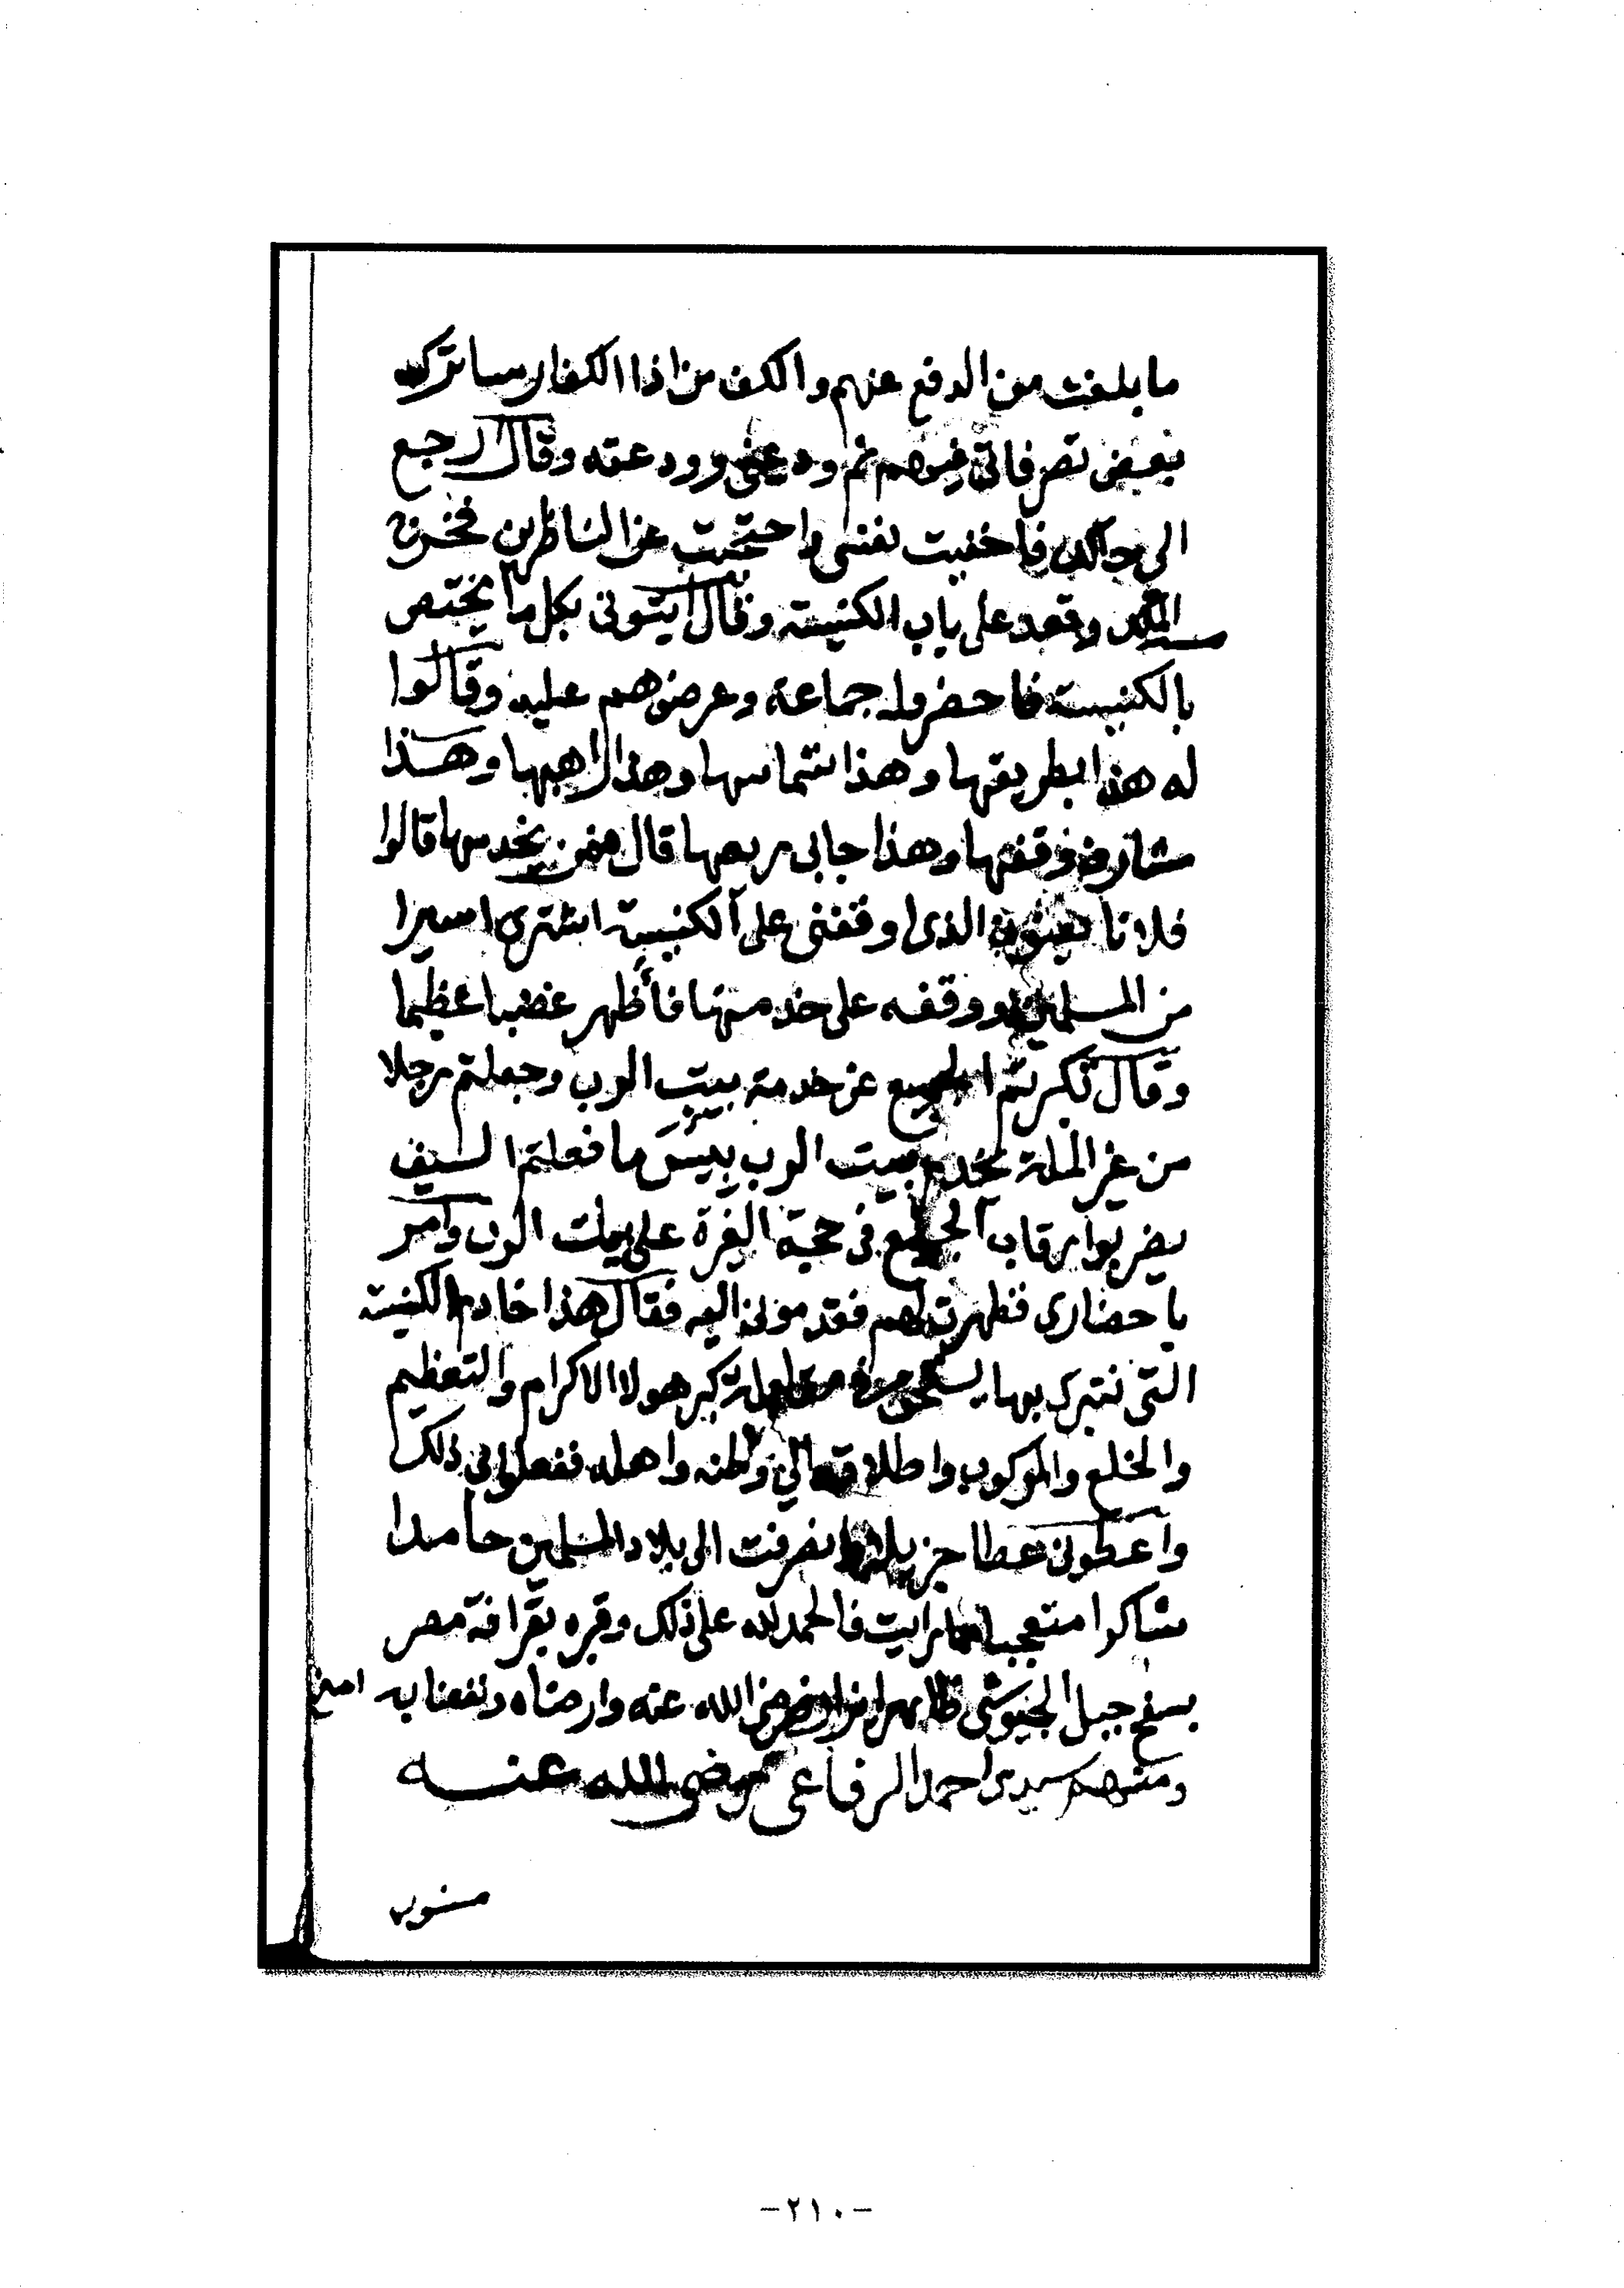 ما بلغت من الدفع عنهم والكف من اذا الكفار ساتركه
بعض تصرفاتى فيهم ثم ودعنى وودعته وقال ارجع
الى حالك فاخفيت نفسى واحتجبت عن الناظرين فخرج
الملك وقعد على باب الكنيسة وقال ايتونى بكل ما يختص
بالكنيسة فاحضروا له جماعة وعرضوهم عليه وقالوا
له هذا بطريقها وهذا شماسها وهذا راهبها وهذا
مشارف وقفها وهذا جابى ريعها قال فمن يخدمها قالوا
فلانا يعنون الذى اوقفنى على الكنيسة اشترى اسيرا
من المسلمين ووقفه على خدمتها فأظهر غضبا عظيما
وقال تكبرتم الجميع عن خدمة بيت الرب وجعلتم رجلا
من غير الملة يخدم بيت الرب بيس ما فعلتم السيف
يضربوا رقاب الجميع فى حجة الغيرة على بيت الرب وامر
باحضارى فظهرت لهم فقدمونى اليه فقال هذا خادم الكنيسة
التى نتبرك بها يستحق تكبر هولا الاكرام والتعظيم
والخلع والمركوب واطلاقه الى وطنه واهله ففعلوا بى ذلك
واعطونى عطا جزيلا وانصرفت الى بلاد المسلمين حامدا
شاكرا متعجبا مما رايت فالحمد لله على ذلك وقبره بقرافة مصر
بسفح جبل الجيوشى ظاهرا يزار رضى الله عنه وارضاه ونفعنا به امين
ومنهم سيدى احمد الرفاعى رضى الله عنه
منسوب
-٢١٠-